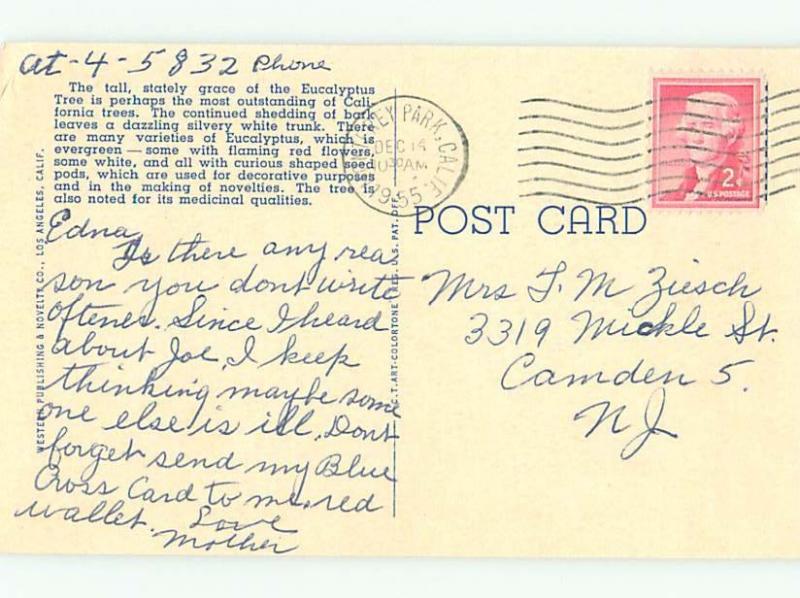 at-4-5832 Phone
The tall, stately grace of the Eucalyptus
Tree is perhaps the most outstanding of Cali-
fornia trees. The continued shedding of bark
leaves a dazzling silvery white trunk. There
are many varieties of Eucalyptus, which is
evergreen — some with flaming red flowers,
some white, and all with curious shaped seed
pods, which are used for decorative purposes
and in the making of novelties. The tree is
also noted for its medicinal qualities.
WESTERN PUBLISHING & NOVELTY CO., LOS ANGELES, CALIF.
Edna,
Is there any rea
son you dont write
oftener. Since I heard
about Joe, I keep
thinking maybe some
one else is ill. Dont
forget send my Blue
Cross Card to me, red
wallet. Love
Mother
C.T. ART-COLORTONE REG. U.S. PAT. OFF.
MONTEREY PARK, CALIF.
DEC 14
10 30 AM
1955
2¢
U.S. POSTAGE
POST CARD
Mrs F. M Ziesch
3319 Mickle St.
Camden 5.
NJ